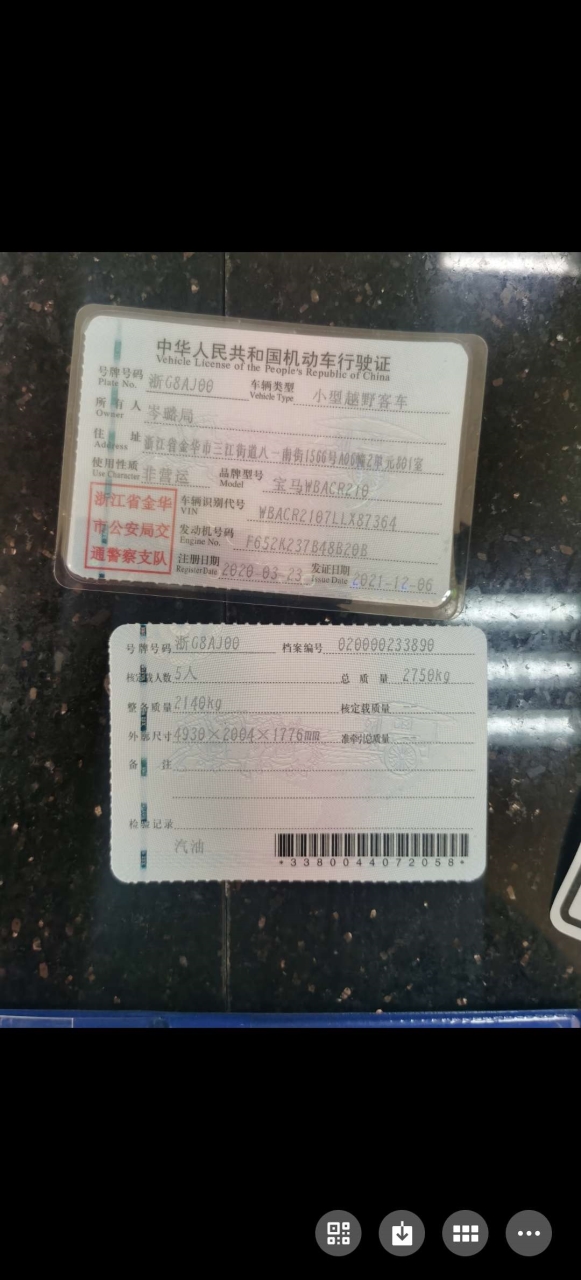 中华人民共和国机动车行驶证
Vehicle License of the People's Republic of China
号牌号码 Plate No. 浙G8AJ00 车辆类型 Vehicle Type 小型越野客车
所有人 Owner 岑璐局
住址 Address 浙江省金华市三江街道八一南街1566号A06幢2单元801室
使用性质 Use Character 非营运 品牌型号 Model 宝马WBACR210
浙江省金华
市公安局交
通警察支队
车辆识别代号 VIN WBACR2107LLX87364
发动机号码 Engine No. F652K237B48B20B
注册日期 Register Date 2020-03-23 发证日期 Issue Date 2021-12-06
号牌号码 浙G8AJ00 档案编号 020000233890
核定载人数 5人 总质量 2750kg
整备质量 2140kg 核定载质量 --
外廓尺寸 4930×2004×1776mm 准牵引总质量 --
备注
检验记录
汽油
*3380044072058*